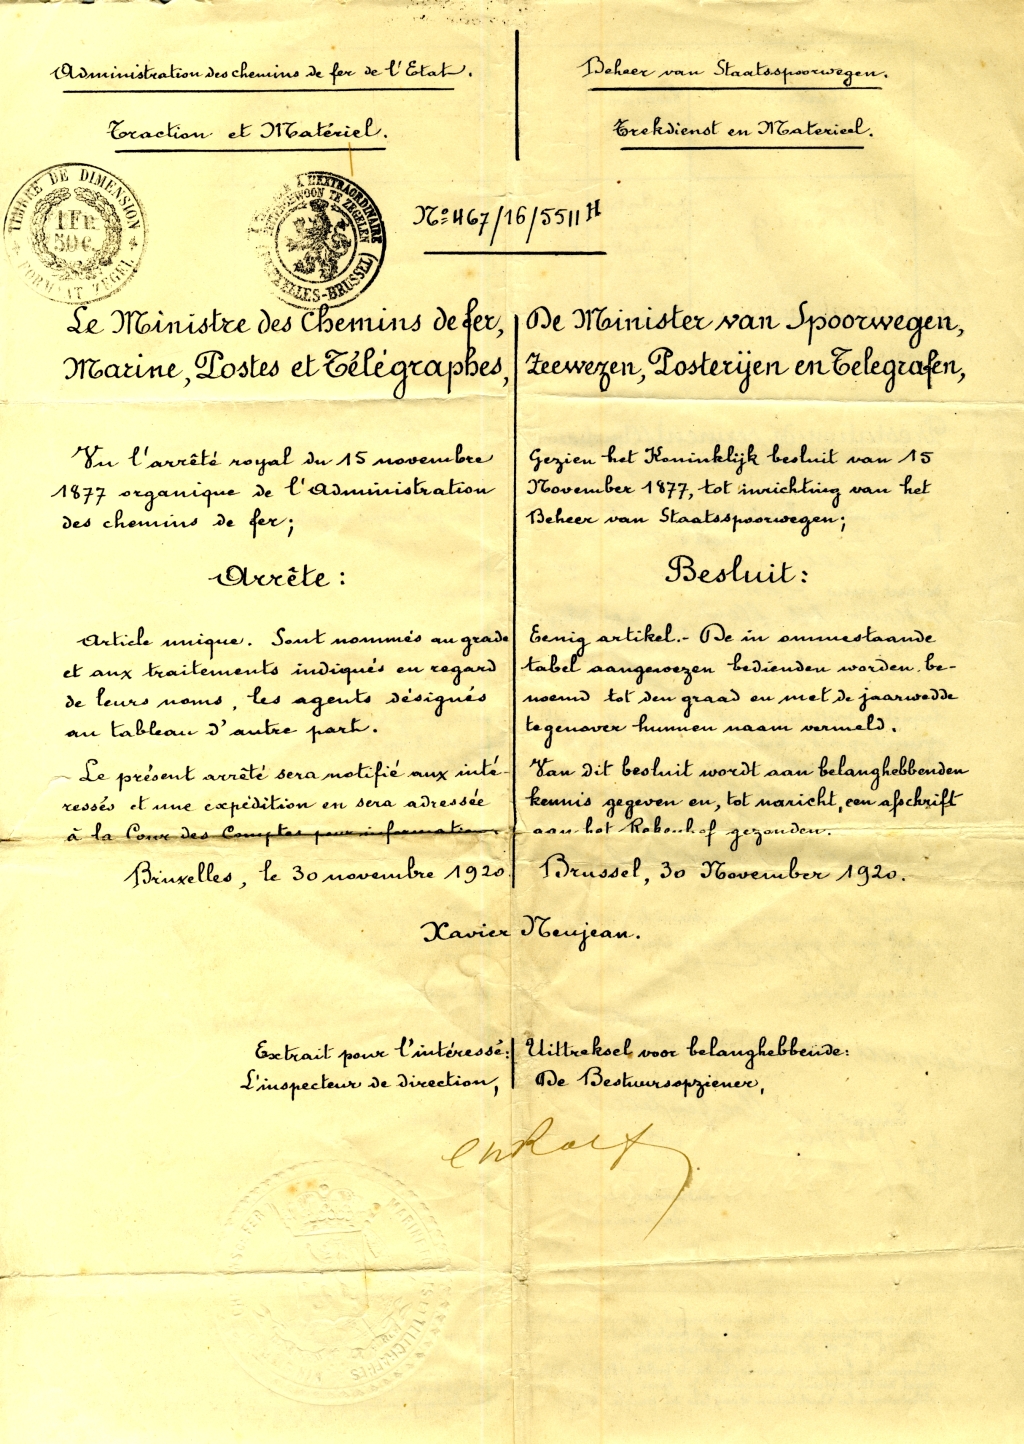 Administration des chemins de fer de l'Etat.
Traction et Matériel.
Beheer van Staatsspoorwegen.
Trekdienst en Materieel.
TIMBRE DE DIMENSION
1 FR.
50 C.
FORMAAT ZEGEL
A L'EXTRAORDINAIRE
TE ZEGELEN
BRUSSEL
No 467/16/5511 H
Le Ministre des Chemins de fer,
Marine, Postes et Télégraphes,
Vu l'arrêté royal du 15 novembre
1877 organique de l'Administration
des chemins de fer;
Arrête:
Article unique. Sont nommés au grade
et aux traitements indiqués en regard
de leurs noms, les agents désignés
au tableau d'autre part.
Le présent arrêté sera notifié aux inté-
ressés et une expédition en sera adressée
à la Cour des Comptes pour information.
Bruxelles, le 30 novembre 1920
De Minister van Spoorwegen,
Zeewezen, Posterijen en Telegrafen,
Gezien het Koninklijk besluit van 15
November 1877, tot inrichting van het
Beheer van Staatsspoorwegen;
Besluit:
Eenig artikel.- De in ommestaande
tabel aangewezen bedienden worden be-
noemd tot den graad en met de jaarwedde
tegenover hunnen naam vermeld.
Van dit besluit wordt aan belanghebbenden
kennis gegeven en, tot naricht, een afschrift
aan het Rekenhof gezonden.
Brussel, 30 November 1920.
Xavier Neujean.
Extrait pour l'intéressé:
L'inspecteur de direction,
Uittreksel voor belanghebbende:
De Bestuursopziener,